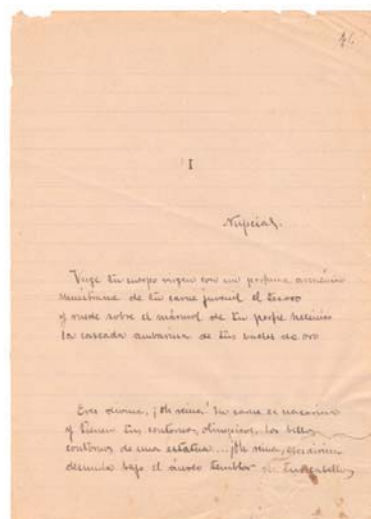 I
Nupcial.
Unge tu cuerpo virgen con un perfume armenio
muéstrame de tu carne juvenil el tesoro
y ruede sobre el mármol de tu perfil
la cascada ambarina de tus bucles de oro
Eres divina, ¡oh reina! Tu carne es nacarina
y tienen tus contornos, olímpicos, los bellos
contornos de una estatua... ¡Oh reina,
desnuda bajo el áureo temblor de tus cabellos